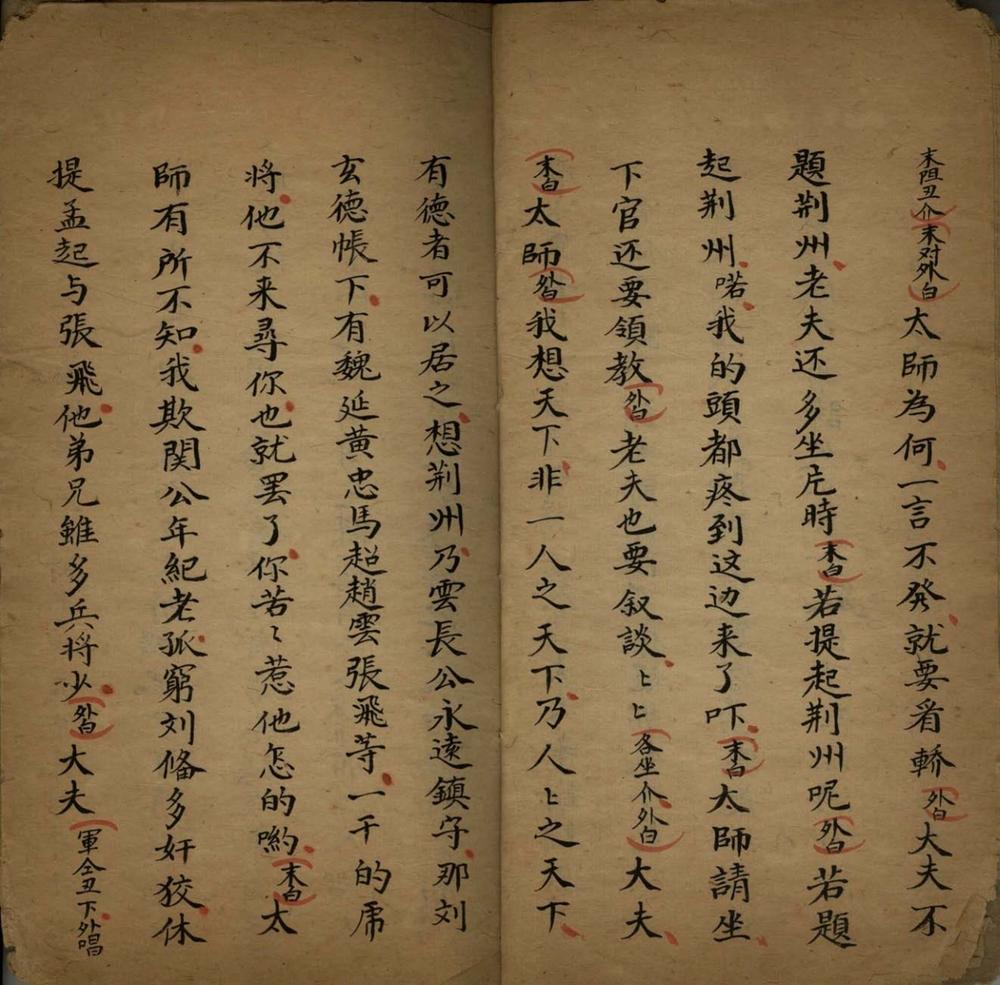 末阻丑介末对外白太師為何一言不發就要看轎外白大夫不
題荆州老夫还多坐片時末白若提起荆州呢外白若題
起荆州喏我的頭都疼到这边来了吓末白太師請坐
下官还要領教外白老夫也要叙談〻〻各坐介外白大夫
末白太師外白我想天下非一人之天下乃人〻之天下
有德者可以居之想荆州乃雲長公永遠鎮守那刘
玄德帳下有魏延黄忠馬超趙雲張飛等一干的虎
将他不来尋你也就罷了你苦〻惹他怎的喲末白太
師有所不知我欺関公年紀老孤窮刘俻多奸狡休
提孟起与張飛他弟兄雖多兵将少外白大夫軍仝丑下外唱